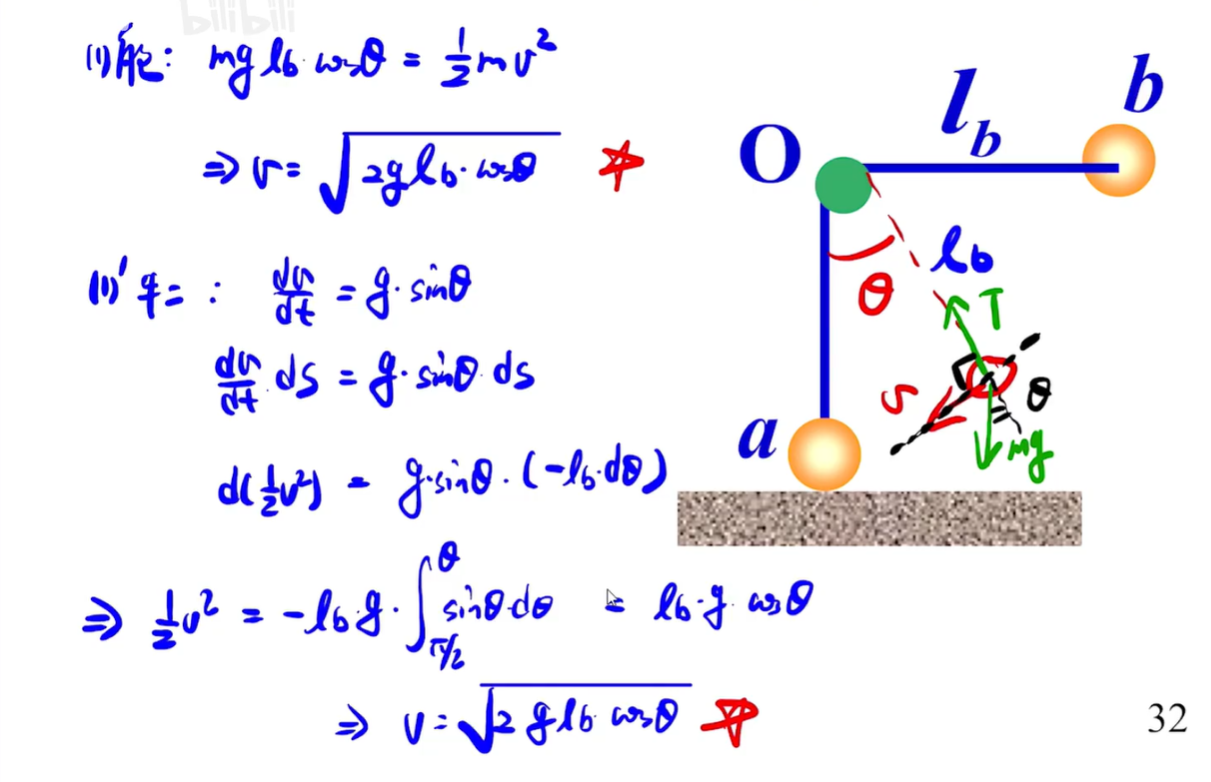 bilibili
(1) 能: mg lb·cosθ = 1/2 m v²
⇒ v = √(2g lb·cosθ)
(1)' 牛二: dv/dt = g·sinθ
dv/dt·ds = g·sinθ·ds
d(1/2 v²) = g·sinθ·(-lb·dθ)
⇒ 1/2 v² = -lb·g·∫_{π/2}^{θ} sinθ·dθ = lb·g·cosθ
⇒ v = √(2 g lb cosθ)
O
l_b
b
θ
lb
T
v
θ
mg
a
32